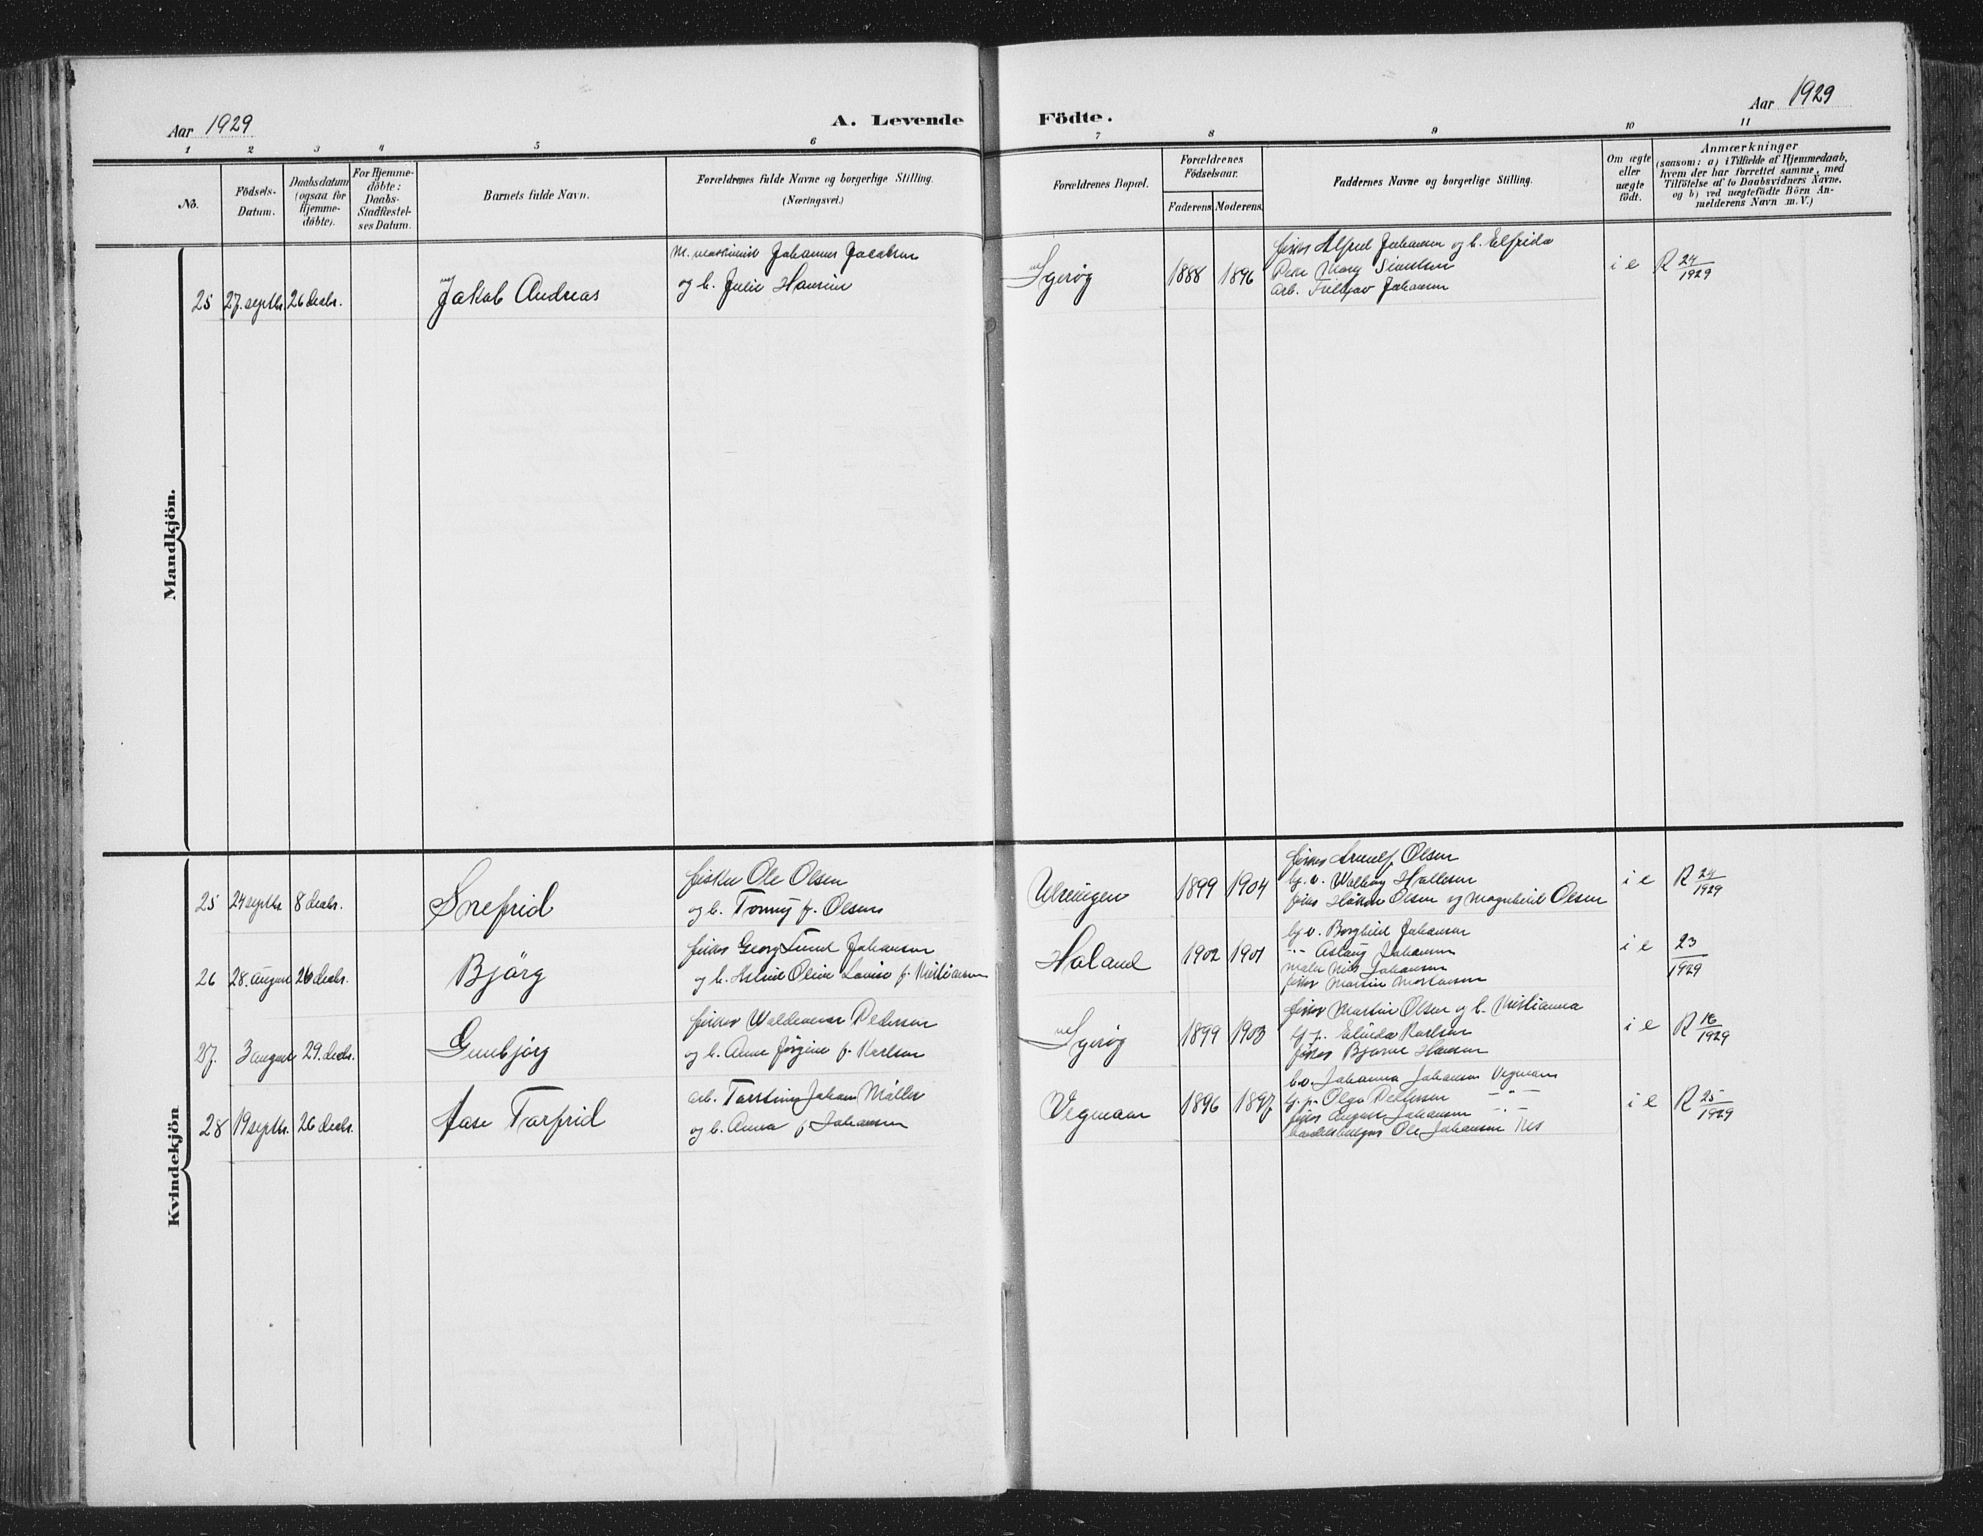 Aar 1929
A. Levende Födte.
Aar 1929
1 2 3 4 5 6 7 8 9 10 11
No.
Födsels-
Datum.
Daabsdatum
(ogsaa for
Hjemme-
döbte).
For Hjemme-
döbte:
Daabs-
Stadfæstel-
ses Datum.
Barnets fulde Navn.
Forældrenes fulde Navne og borgerlige Stilling.
(Næringsvei.)
Forældrenes Bopæl.
Forældrenes
Födselsaar.
Faderens. Moderens.
Faddernes Navne og borgerlige Stilling.
Om ægte
eller
uægte
födt.
Anmærkninger
(saasom: a) i Tilfælde af Hjemmedaab,
hvem der har forrettet samme, med
Tilföielse af to Daabsvidners Navne.
og b) ved uægtefödte Börn An-
melderens Navn m. V.)
Mandkjön.
25 27. septbr. 26 decbr.
Jakob Andreas
Johannes Jacobsen
og h. Julie Hansine
1888 1896
fisker Alfred Johansen og h. Elfrida
arb. Johansen
i e
R 24/1929
Kvindekjön
25 24 septbr 8 decbr.
Snefrid
fisker Ole Olsen
og h. Tonny f. Olsen
1899 1904
fisker Arnulf Olsen
fisker Håkon Olsen og Magnhild Olsen
i e
R 24/1929
26 28. august 26 decbr.
Bjørg
fisker Georg Johansen
og h. Oline Lovise f. Kristiansen
Haland
1902 1901
Borghild Johansen
-"- Aslaug Johansen
maler Nils Johansen
fisker Martin
i e
23/1929
27. 3 august 29. decbr.
Gunbjørg
fisker Waldemar Pedersen
og h. Anne Jørgine f. Karlsen
1899 1903
fisker Martin Olsen og h. Kristianna
Karlsen
fisker Bjarne Hansen
i e
R 16/1929
28 19 septbr. 26 decbr.
Aase Torfrid
arb. Johan Møller
og h. Anna f. Johansen
Vegmann
1896 1897
Johanna Johansen Vegmann
Olga Pettersen -"-
fisker August Johansen -"-
Ole Johansen Nes
i e
R 25/1929